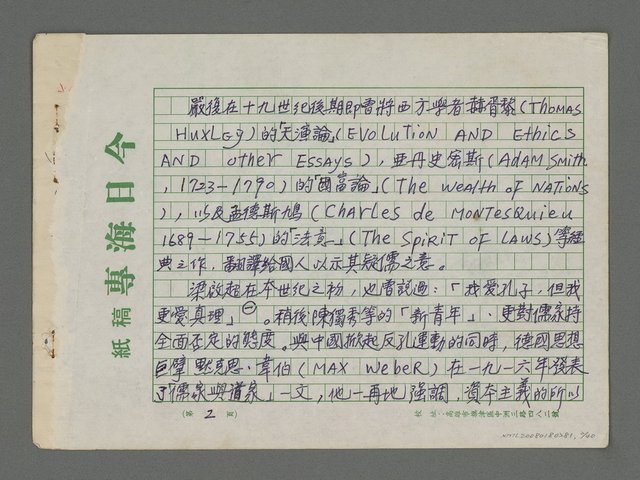 嚴復在十九世紀後期即嘗將西方學者赫胥黎(Thomas
Huxley)的「天演論」(Evolution AND Ethics
AND other Essays),亞丹史密斯(ADAM Smith
,1723—1790)的「國富論」(The wealth of NATIONS
),以及孟德斯鳩(Charles de MONTesquieu
1689—1755)的「法意」(The SpiRiT OF LAWS)等經
典之作,翻譯給國人以示其疑儒之意。
梁啟超在本世紀之初,也嘗說過:「我愛孔子,但我
更愛真理」㊀。稍後陳獨秀等的「新青年」、更對儒家持
全面否定的態度。與中國掀起反孔運動的同時,德國思想
巨擘默克思·韋伯(MAX WebeR)在一九一六年發表
了「儒家與道家」一文,他一再地強調,資本主義的所以
(第 2 頁)
校址:高雄市旗津區中洲三路四八二號
今日海專
稿紙
NMTL20080180381, 7/40